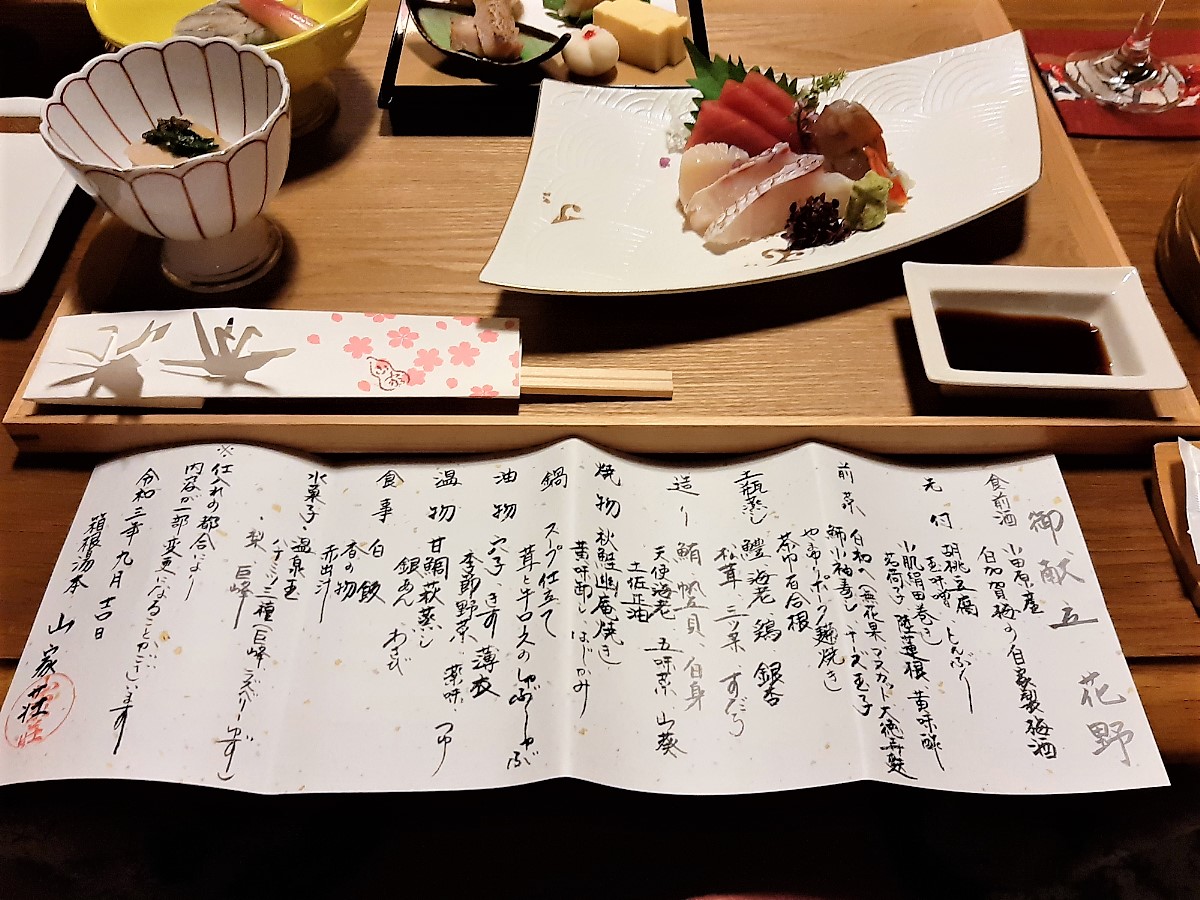 御献立 花野
食前酒 小田原産
白加賀梅の自家製梅酒
先付 胡桃豆腐
玉味噌 とんぶり
小肌絹田巻き
茗荷子 酢蓮根 黄味酢
前菜 白和へ(無花果 マスカット 大徳寺麩
鱒小袖寿し チーズ玉子
やまゆりポーク麹焼き
茶巾百合根
土瓶蒸し 鱧 海老 鶏 銀杏
松茸 三ツ葉 すだち
造り 鮪 帆立貝 白身
天使海老 五味菜 山葵
土佐正油
焼物 秋鮭幽庵焼き
黄味卸し はじかみ
鍋 スープ仕立て
茸と牛ロースのしゃぶしゃぶ
油物 穴子 きす 薄衣
季節野菜 薬味 つゆ
温物 甘鯛萩蒸し
銀あん わさび
食事 白飯
香の物
赤出汁
水菓子・温泉玉
ハチミツ三種(巨峰 ラズベリー ゆず)
・梨 巨峰
※仕入れの都合により
内容が一部変更になることがございます
令和三年九月吉日
箱根湯本 山家荘